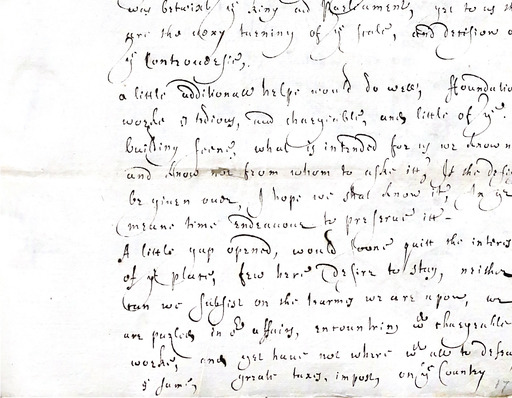 was betwixt ye King and Parliament, yet to us
are the very turning of ye scale, and decision
ye Controversie,
a little additionall helpe would do well, ffoundatio
worke is tedious, and chargeable, and little of ye
building seene, what is intended for us we know
and know not from whom to aske itt, If the
be given over, I hope we shal know it, In
meane time endeavour to preserve itt
A little gap opened, would soone quitt the interes
of ye place, few here desire to stay, neither
can we subsist on the tearmes we are upon, we
are puzled in or affairs, encountring wth chargeable
worke, and yet have not where wth all to defra
ye same, greate taxes, impost, on ye Country
17